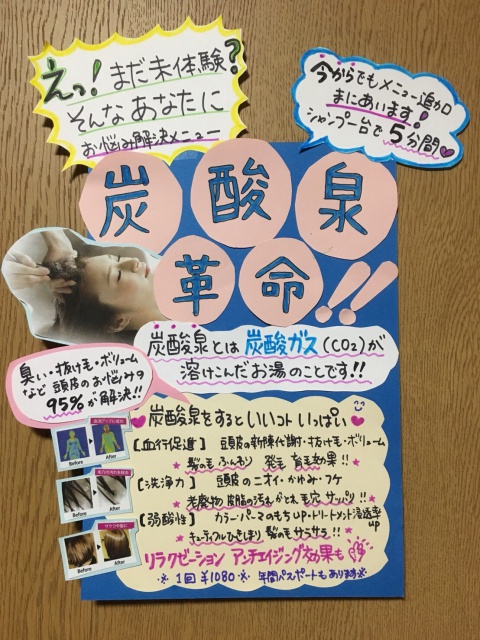 えっ!まだ未体験?
そんなあなたに
お悩み解決メニュー
今からでもメニュー追加
まにあいます!
シャンプー台で5分間
炭酸泉
革命!!
炭酸泉とは炭酸ガス(CO2)が
溶けこんだお湯のことです!!
臭い・抜け毛・ボリューム
など頭皮のお悩みの
95%が解決!!
炭酸泉をするといいコトいっぱい
【血行促進】 頭皮の新陳代謝・抜け毛・ボリューム
髪の毛ふんわり 発毛育毛効果!!
【洗浄力】 頭皮のニオイ・かゆみ・フケ
老廃物皮脂の汚れがとれ毛穴サッパリ!!
【弱酸性】 カラー・パーマのもちUP・トリートメント浸透率UP
キューティクルひきしまり髪の毛サラサラ!!
リラクゼーション アンチエイジング効果も
※1回¥1080※ 年間パスポートもあります※
Before After
Before After
Before After